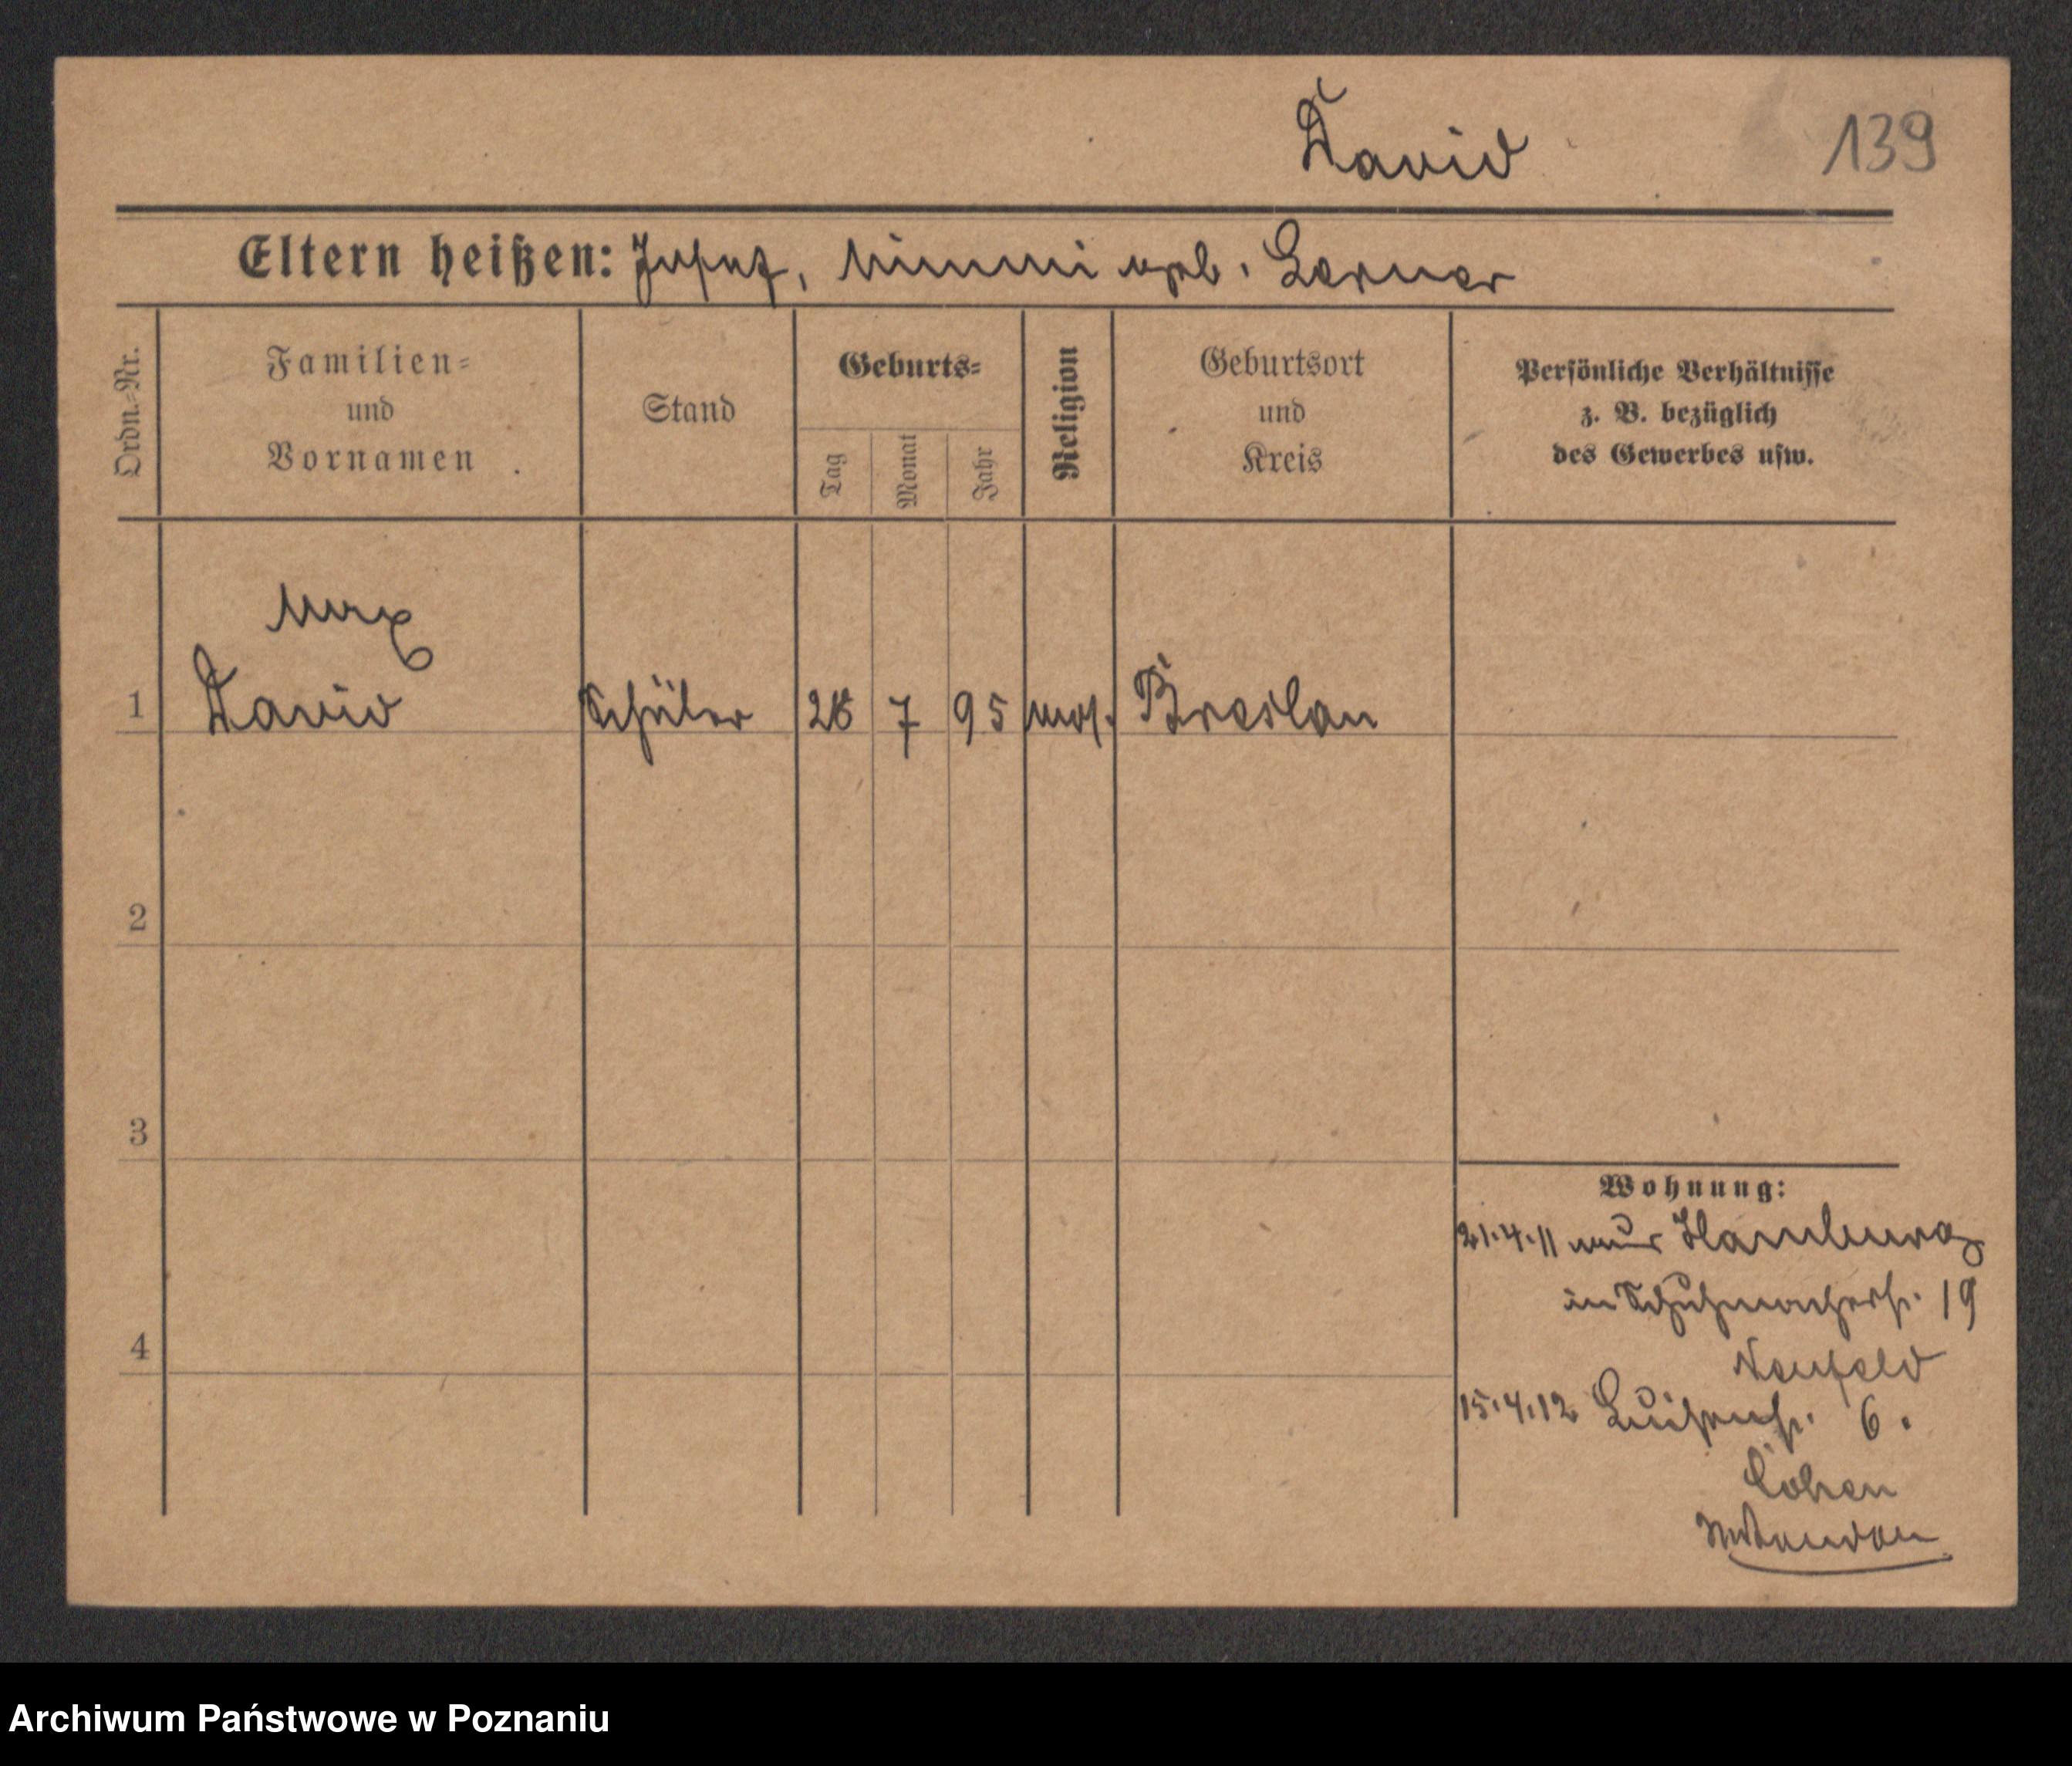 David
139
Eltern heißen: Josef, Mimmi geb. Lerner
Ordn.-Nr.
Familien- und Vornamen
Stand
Geburts-
Tag
Monat
Jahr
Religion
Geburtsort und Kreis
Persönliche Verhältnisse
z. B. bezüglich
des Gewerbes usw.
Max
1 David Schüler 28 7 95 mos. Breslau
2
3
4
Wohnung:
21.4.11 Hamburg
in Schuhmacherst. 19
Neufeld
15.4.12 Luisenst. 6.
Cohen